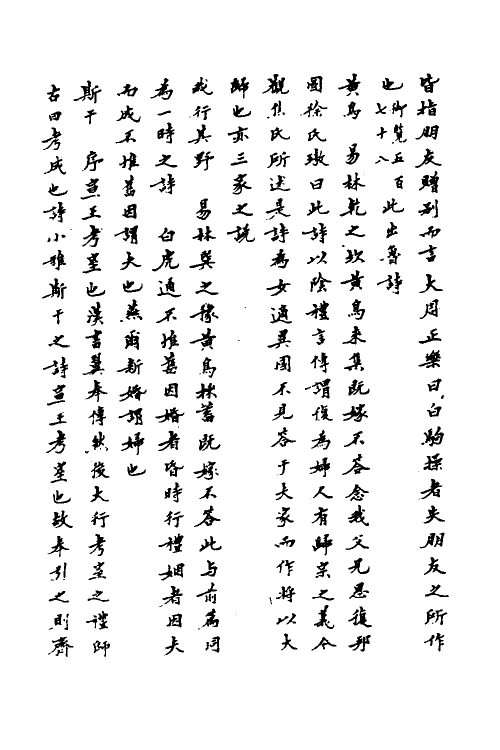 皆指朋友贈別而言大周正樂曰白駒操者失朋友之所作
也御覽五百七十八此出魯詩
黃鳥　易林乾之坎黃鳥來集既嫁不答念我父兄思復邦
國徐氏璈曰此詩以陰禮言傳謂復為婦人有歸宗之義今
觀焦氏所述是詩為女適異國不見答于夫家而作將以大
歸也亦三家之說
我行其野　易林巽之豫黃鳥採蓄既嫁不答此与前篇同
為一時之詩　白虎通不惟舊因婚者昏時行禮姻者因夫
而成不惟舊因謂夫也燕爾新婚謂婦也
斯干　序宣王考室也漢書翼奉傳然後大行考室之禮師
古曰考成也詩小雅斯干之詩宣王考室也故奉引之則齊